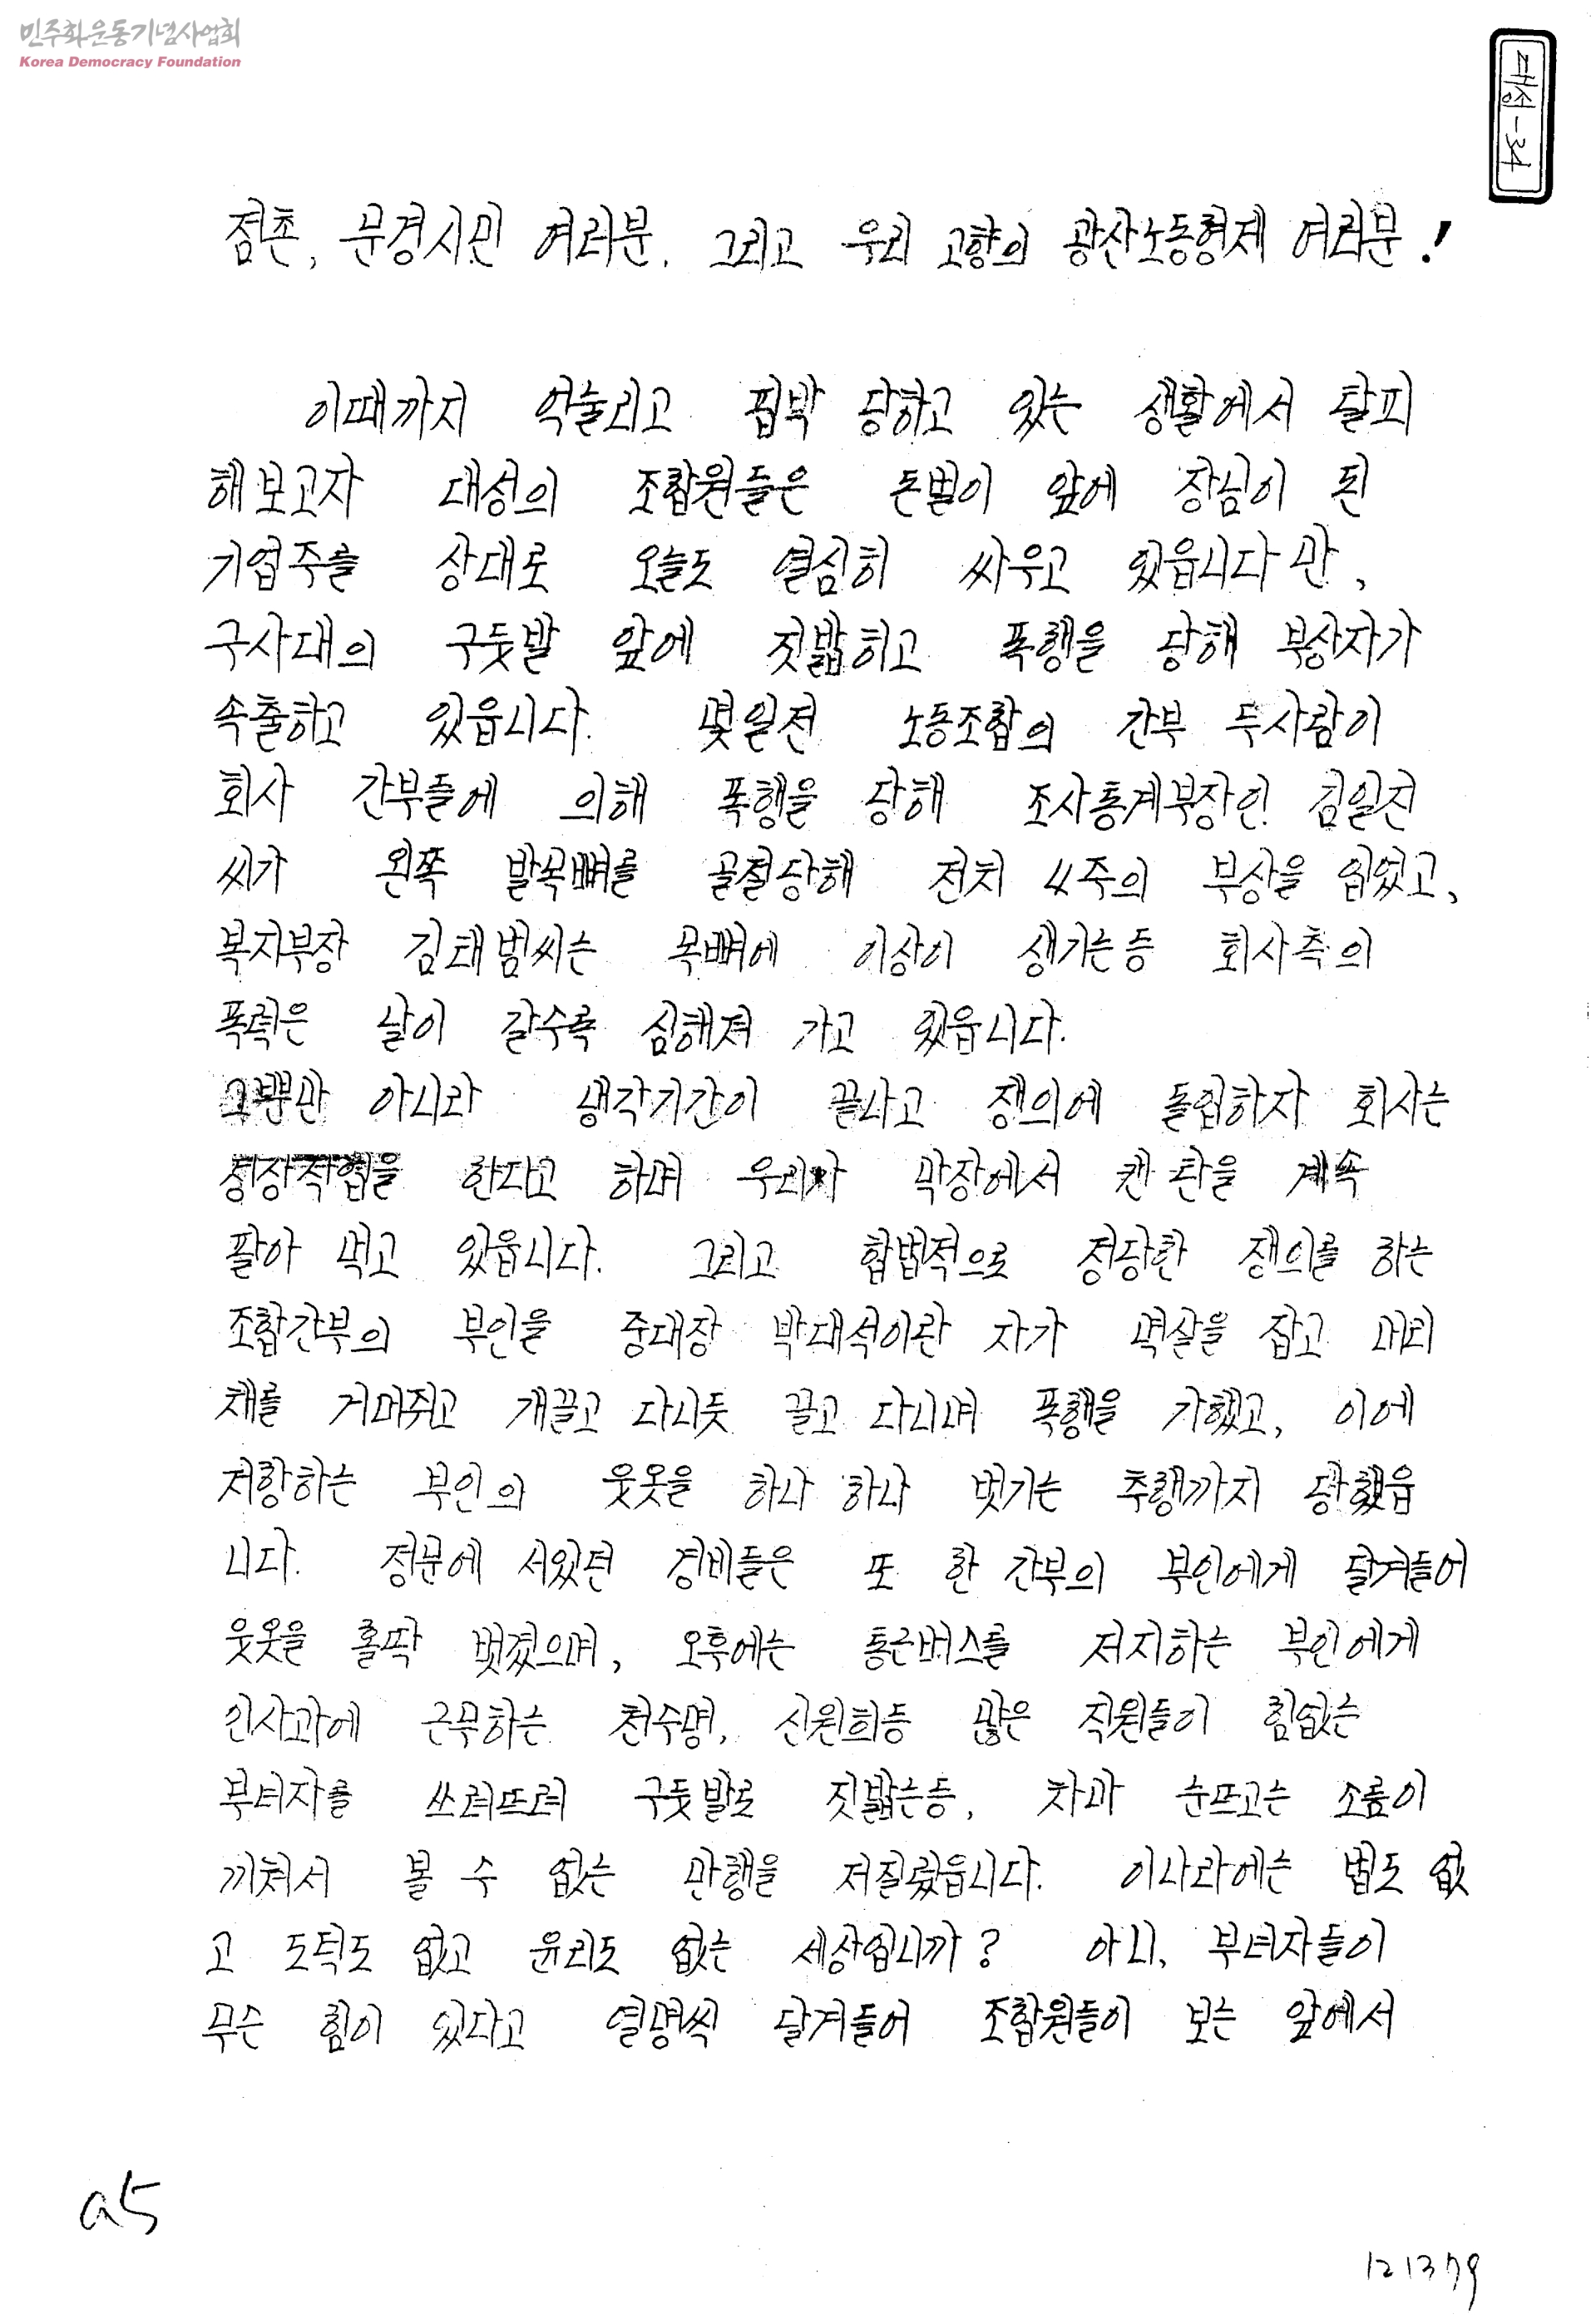 민주화운동기념사업회
Korea Democracy Foundation
대성-34
점촌, 문경시민 여러분. 그리고 우리 고향의 광산노동형제 여러분!
이때까지 억눌리고 핍박 당하고 있는 생활에서 탈피
해보고자 대성의 조합원들은 돈벌이 앞에 장님이 된
기업주를 상대로 오늘도 열심히 싸우고 있읍니다만,
구사대의 구둣발 앞에 짓밟히고 폭행을 당해 부상자가
속출하고 있읍니다. 몇일전 노동조합의 간부 두사람이
회사 간부들에 의해 폭행을 당해 조사통계부장인 김일진
씨가 왼쪽 발목뼈를 골절당해 전치 4주의 부상을 입었고,
복지부장 김태범씨는 목뼈에 이상이 생기는등 회사측의
폭력은 날이 갈수록 심해져 가고 있읍니다.
그뿐만 아니라 냉각기간이 끝나고 쟁의에 돌입하자 회사는
정상작업을 한다고 하며 우리가 막장에서 캔 탄을 계속
팔아 먹고 있읍니다. 그리고 합법적으로 정당한 쟁의를 하는
조합간부의 부인을 중대장 박대석이란 자가 멱살을 잡고 머리
채를 거머쥐고 개끌고 다니듯 끌고 다니며 폭행을 가했고, 이에
저항하는 부인의 웃옷을 하나 하나 벗기는 추행까지 당했읍
니다. 정문에 서있던 경비들은 또 한 간부의 부인에게 달겨들어
웃옷을 홀딱 벗겼으며, 오후에는 통근버스를 저지하는 부인에게
인사과에 근무하는 천수명, 신원희등 많은 직원들이 힘없는
부녀자를 쓰러뜨려 구둣발로 짓밟는등, 차마 눈뜨고는 소름이
끼쳐서 볼 수 없는 만행을 저질렀읍니다. 이나라에는 법도 없
고 도덕도 없고 윤리도 없는 세상입니까? 아니, 부녀자들이
무슨 힘이 있다고 열명씩 달겨들어 조합원들이 보는 앞에서
a5
121379